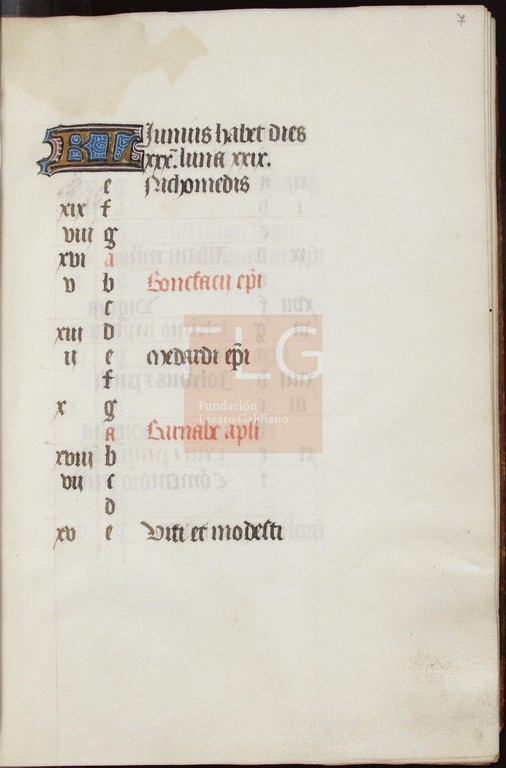 7
KL Junius habet dies
xxx. luna xxix.
e Nichomedis
xix f
viii g
xvi a
v b Bonefacii epi
c
xiii d
ii e Medardi epi
f
x g
a Barnabe apli
xviii b
vii c
d
xv e Viti et modesti
FLG
Fundación
Lázaro Galdiano